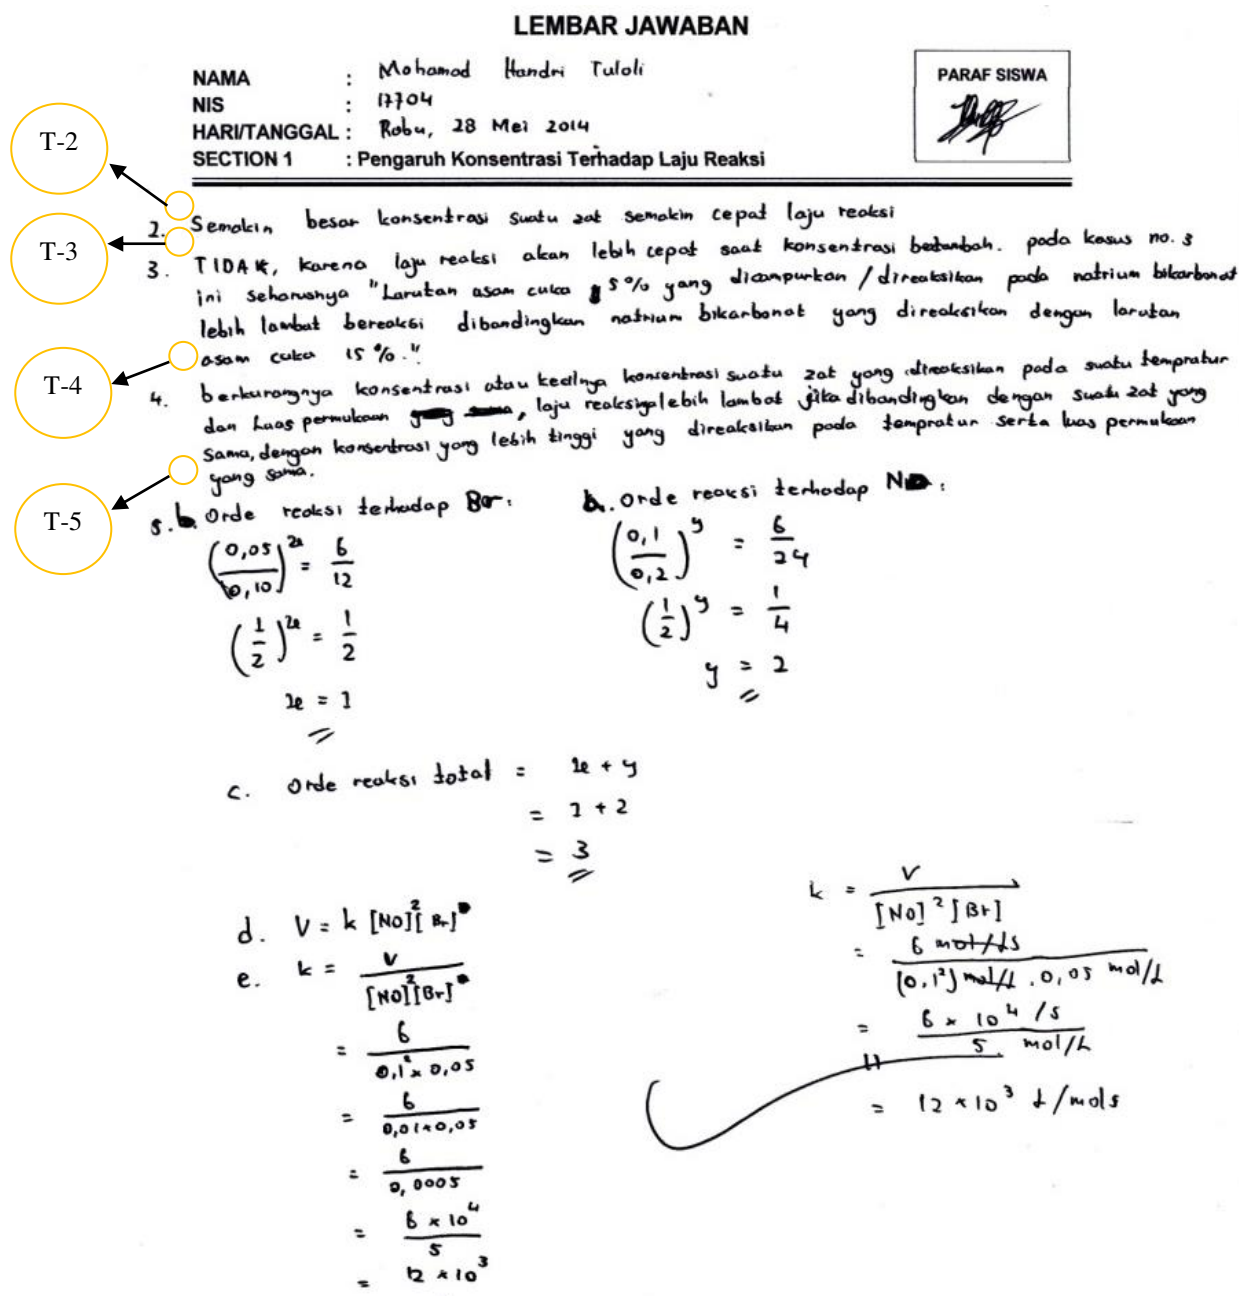 LEMBAR JAWABAN
NAMA : Mohamad Handri Tuloli
NIS : 17704
HARI/TANGGAL : Rabu, 28 Mei 2014
SECTION 1 : Pengaruh Konsentrasi Terhadap Laju Reaksi
PARAF SISWA
T-2
2. Semakin besar konsentrasi suatu zat semakin cepat laju reaksi
T-3
3. TIDAK, karena laju reaksi akan lebih cepat saat konsentrasi bertambah. pada kasus no. 3
ini seharusnya "Larutan asam cuka 5% yang dicampurkan / direaksikan pada natrium bikarbonat
lebih lambat bereaksi dibandingkan natrium bikarbonat yang direaksikan dengan larutan
asam cuka 15 %."
T-4
4. berkurangnya konsentrasi atau kecilnya konsentrasi suatu zat yang direaksikan pada suatu tempratur
dan Luas permukaan, laju reaksinya lebih lambat jika dibandingkan dengan suatu zat yang
sama, dengan konsentrasi yang lebih tinggi yang direaksikan pada tempratur serta luas permukaan
yang sama.
T-5
5. b. Orde reaksi terhadap Br:
(0,05/0,10)^x = 6/12
(1/2)^x = 1/2
x = 1
a. orde reaksi terhadap NO:
(0,1/0,2)^y = 6/24
(1/2)^y = 1/4
y = 2
c. Orde reaksi total = x + y
= 1 + 2
= 3
d. V = k [NO]² [Br]
e. k = V/[NO]²[Br]
= 6/0,1² x 0,05
= 6/0,01 x 0,05
= 6/0,0005
= 6 x 10⁴/5
= 12 x 10³
k = V/[NO]²[Br]
= 6 mol/Ls/(0,1²) mol/L . 0,05 mol/L
= 6 x 10⁴ /s/5. mol/L
= 12 x 10³ L/mol s